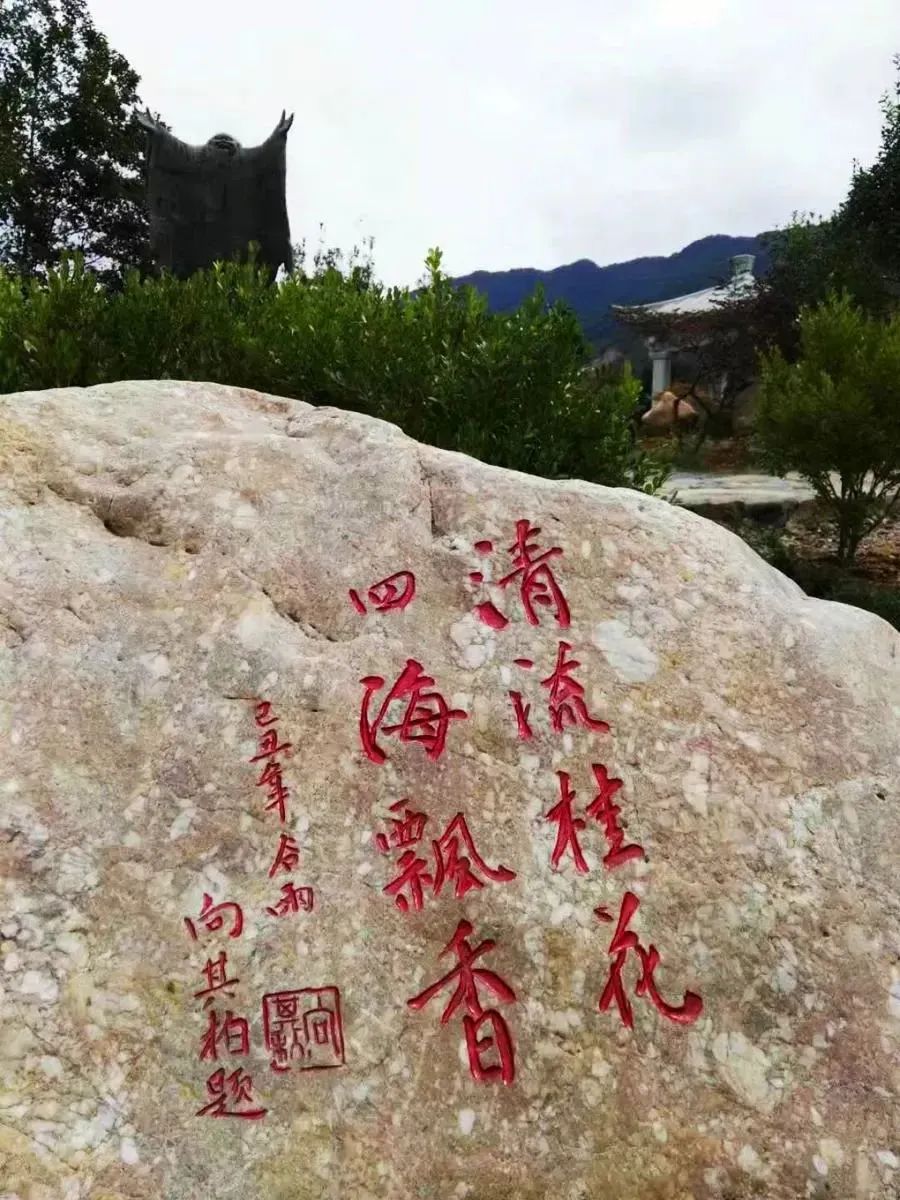 清流桂花
四海飘香
己丑年谷雨
向其柏题